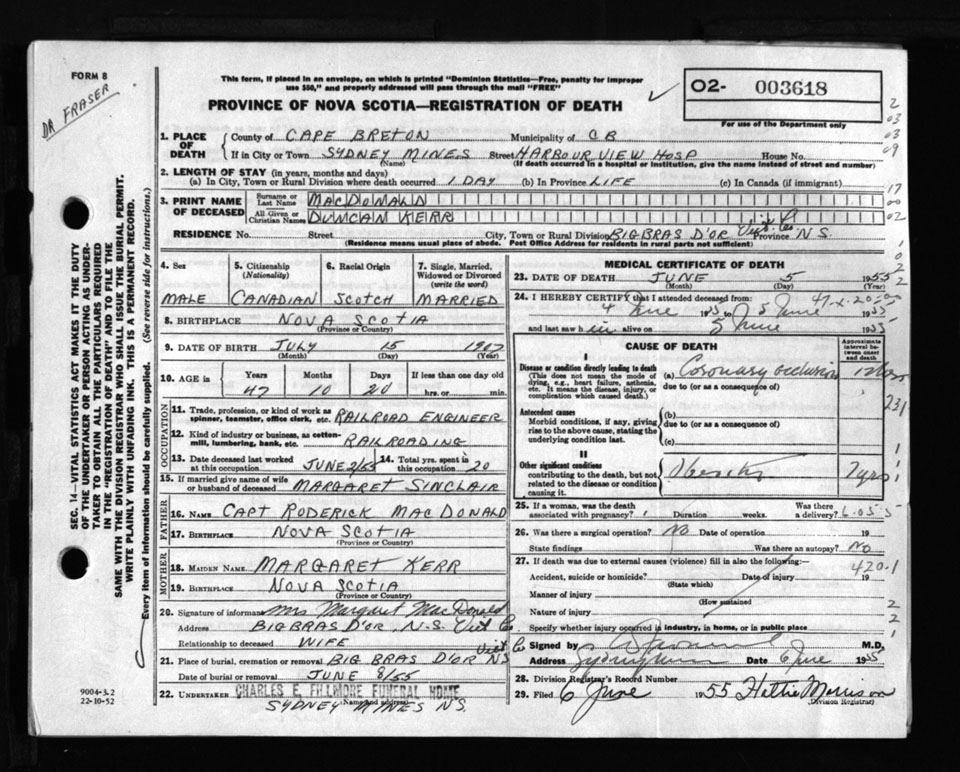 FORM 8
DR FRASER
This form, if placed in an envelope, on which is printed "Dominion Statistics—Free, penalty for improper
use $50," and properly addressed will pass through the mail "FREE"
PROVINCE OF NOVA SCOTIA—REGISTRATION OF DEATH
O2- 003618
For use of the Department only
1. PLACE OF DEATH
County of CAPE BRETON Municipality of C B
If in City or Town SYDNEY MINES Street HARBOUR VIEW HOSP House No.
(Name) (If death occurred in a hospital or institution, give the name instead of street and number)
2. LENGTH OF STAY (in years, months and days)
(a) In City, Town or Rural Division where death occurred 1 DAY (b) In Province LIFE (c) In Canada (if immigrant)
3. PRINT NAME OF DECEASED
Surname or Last Name MACDONALD
All Given or Christian Names DUNCAN KERR
RESIDENCE No. Street City, Town or Rural Division BIG BRAS D'OR Vict. Co Province N.S.
(Residence means usual place of abode. Post Office Address for residents in rural parts not sufficient)
4. Sex
MALE
5. Citizenship (Nationality)
CANADIAN
6. Racial Origin
SCOTCH
7. Single, Married, Widowed or Divorced (write the word)
MARRIED
8. BIRTHPLACE NOVA SCOTIA
(Province or Country)
9. DATE OF BIRTH JULY 15 1907
(Month) (Day) (Year)
10. AGE in Years Months Days If less than one day old
47 10 20 hrs. or min.
OCCUPATION
11. Trade, profession, or kind of work as spinner, teamster, office clerk, etc. RAILROAD ENGINEER
12. Kind of industry or business, as cotton-mill, lumbering, bank, etc. RAILROADING
13. Date deceased last worked at this occupation JUNE 2/55 14. Total yrs. spent in this occupation 20
15. If married give name of wife or husband of deceased MARGARET SINCLAIR
FATHER
16. NAME CAPT RODERICK MACDONALD
17. BIRTHPLACE NOVA SCOTIA
(Province or Country)
MOTHER
18. MAIDEN NAME MARGARET KERR
19. BIRTHPLACE NOVA SCOTIA
(Province or Country)
20. Signature of informant Mrs Margaret MacDonald
Address BIG BRAS D'OR, N.S. Vict Co
Relationship to deceased WIFE
21. Place of burial, cremation or removal BIG BRAS D'OR Vict NS
Date of burial or removal JUNE 8/55
22. UNDERTAKER CHARLES E. FILLMORE FUNERAL HOME
(Name and address)
SYDNEY MINES N.S.
MEDICAL CERTIFICATE OF DEATH
23. DATE OF DEATH JUNE 5 1955
(Month) (Day) (Year)
24. I HEREBY CERTIFY that I attended deceased from:
4 June 1955 to 5 June 1955
and last saw him alive on 5 June 1955
CAUSE OF DEATH
Approximate interval between onset and death
I
Disease or condition directly leading to death
(This does not mean the mode of dying, e.g., heart failure, asthenia, etc. It means the disease, injury, or complication which caused death.)
(a) Coronary occlusion
due to (or as a consequence of)
Antecedent causes
Morbid conditions, if any, giving rise to the above cause, stating the underlying condition last.
(b)
due to (or as a consequence of)
(c)
II
Other significant conditions
contributing to the death, but not related to the disease or condition causing it.
Obesity 7 yrs
25. If a woman, was the death associated with pregnancy? Duration weeks. Was there a delivery?
26. Was there a surgical operation? No Date of operation 19
State findings Was there an autopsy? No
27. If death was due to external causes (violence) fill in also the following:—
420.1
Accident, suicide or homicide? Date of injury 19
(State which)
Manner of injury
(How sustained
Nature of injury
Specify whether injury occurred in industry, in home, or in public place
Signed by M.D.
Address Date 6 June 1955
28. Division Registrar's Record Number
29. Filed 6 June 1955 Hattie Morrison
(Division Registrar)
SEC. 14—VITAL STATISTICS ACT MAKES IT THE DUTY
OF THE UNDERTAKER OR PERSON ACTING AS UNDER-
TAKER TO OBTAIN ALL THE PARTICULARS REQUIRED
IN THE "REGISTRATION OF DEATH" AND TO FILE THE
SAME WITH THE DIVISION REGISTRAR WHO SHALL ISSUE THE BURIAL PERMIT.
WRITE PLAINLY WITH UNFADING INK. THIS IS A PERMANENT RECORD.
Every item of information should be carefully supplied. (See reverse side for instructions.)
9004-3.2
22-10-52